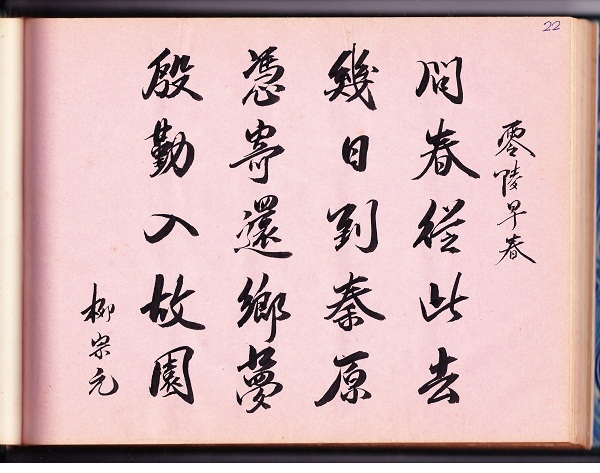 22
零陵早春
問春從此去
幾日到秦原
憑寄還鄉夢
殷勤入故園
柳宗元